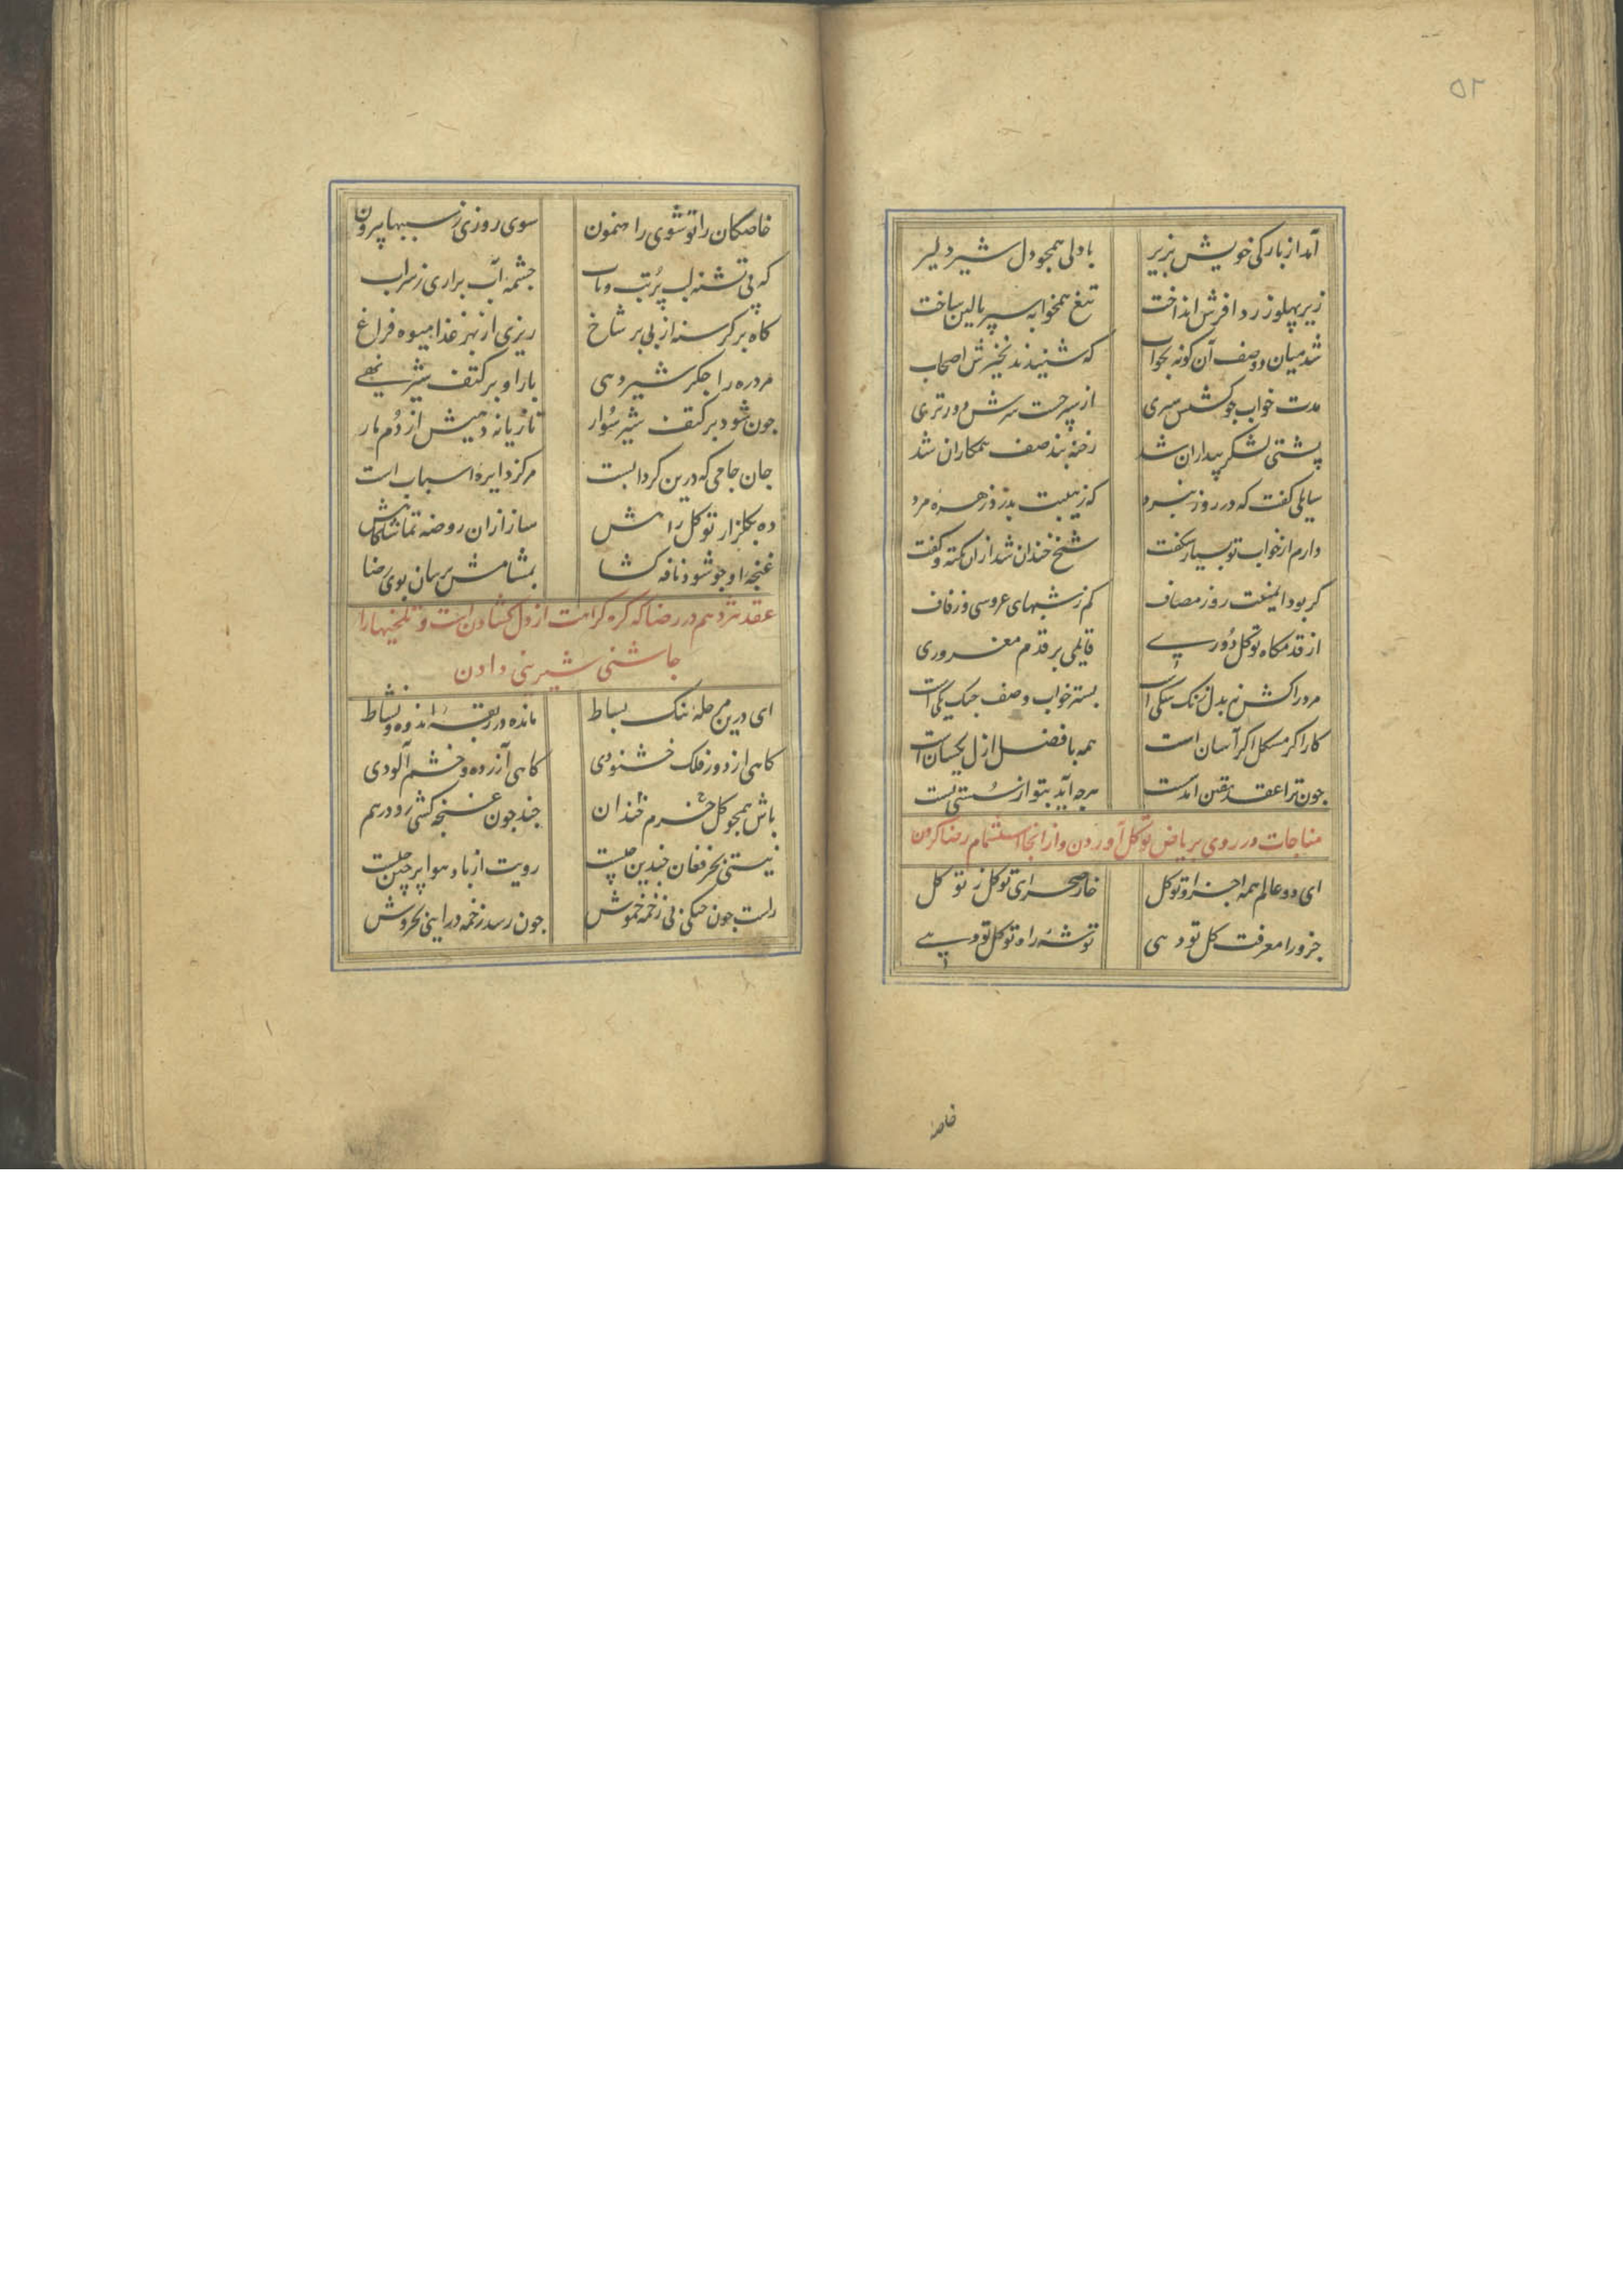 ٥٢
آمد از بارکی خویش بزیر با دلی همجو دل شیر دلیر
زیر پهلو ز ردا فرش انداخت تیغ همخوابه سپر بالین ساخت
شد میان دو صف آن کونه بخواب که شنیدند نخیرش اصحاب
مدت خواب جو کشتش سپری از سپر جست سرش در تری
پشتی لشکر بیداران شد رخنه بند صف همکاران شد
سایلی کفت که در روز نبرد که ز هیبت بدرد زهره مرد
دارم از خواب تو بسیار شکفت شیخ خندان شد ازان نکته و کفت
کر بود ایمنیت روز مصاف کم ز شبهای عروسی و زفاف
از قدمکاه توکل دوری قایمی بر قدم مغروری
مرد را کش نم بدل زنک شکی است بستر خواب و صف جنک یکی است
کار اکر مشکل اکر آسان است همه با فضل ازل یکسان است
جون ترا عقد یقین آمد سست هرجه آید بتو از سستی تست
مناجات در روی بریاض توکل آوردن و از انجا استشمام رضا کردن
ای دو عالم همه اجزا و تو کل خار صحرای توکل ز تو کل
جزو را معرفت کل تو دهی توشه راه توکل تو دهی
خاصه
خاصکان را تو شوی راهنمون سوی روزی ز سببها بیرون
که پی تشنه لب پرتب و تاب جشمه آب براری ز سراب
کاه بر کرسنه از بی بر شاخ ریزی از بهر غذا میوه فراخ
مرد ره را جکر شیر دهی بار او بر کتف شیر نهی
جون شود بر کتف شیر سوار تازیانه دهیش از دم مار
جان جامی که درین کرداب است مرکز دایره اسباب است
ده بکلزار توکل راهش ساز ازان روضه تماشاکاهش
غنجه او جو شود نافه کشا بمشامش برسان بوی رضا
عقد نزدهم در رضا که کره کراهت از دل کشادن است و تلخیها را
جاشنی شیرینی دادن
ای درین مرحله تنک بساط مانده در ربقه اندوه و نشاط
کاهی از دور فلک خشنودی کاهی آزرده و خشم آلودی
باش همجو کل خرم خندان جند جون غنجه کشی رو درهم
نیستی بحر فغان جندین جیست رویت از باد هوا پرجین جیست
راست جون جنکی بی زخمه خموش جون رسد زخمه درایی بخروش